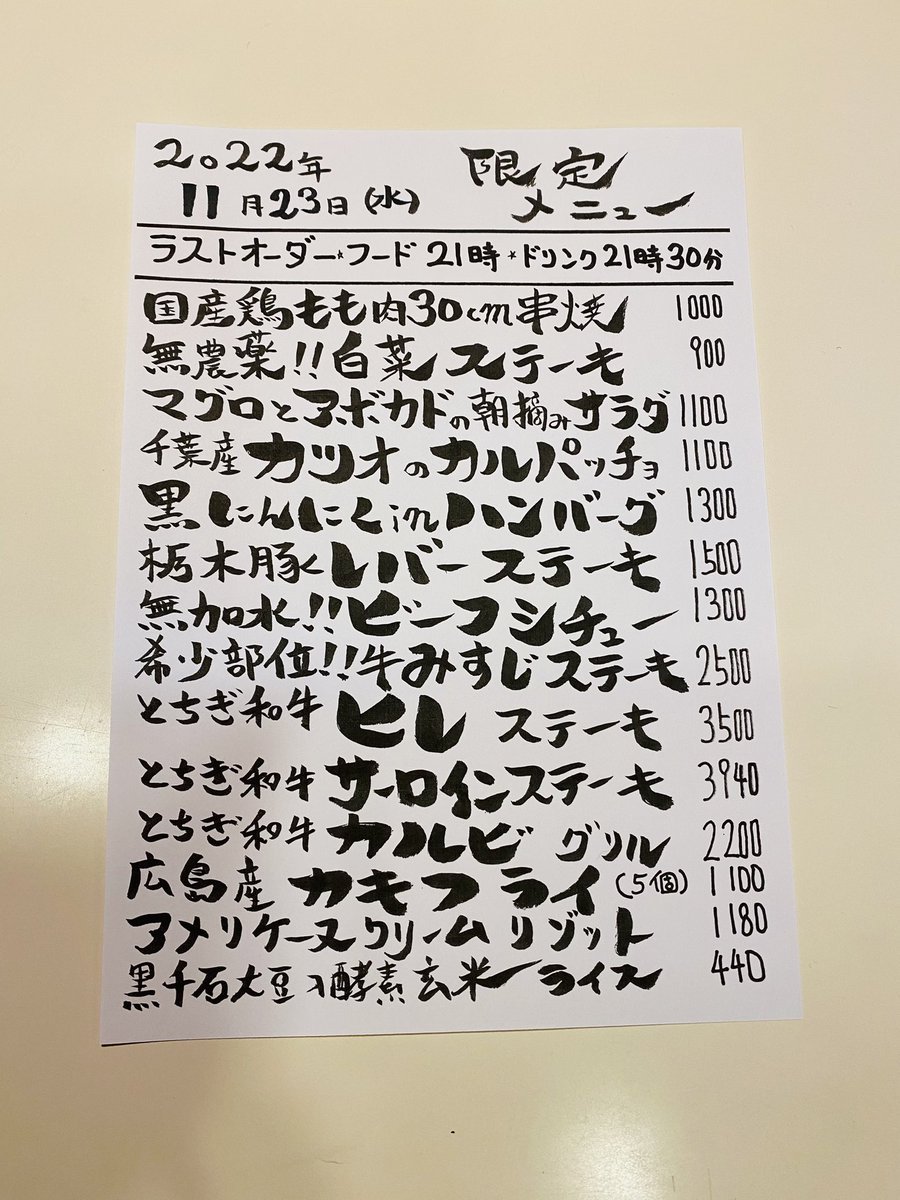 2022年
11月23日(水)
限定
メニュー
ラストオーダー*フード 21時 * ドリンク21時30分
国産鶏もも肉30cm串焼 1000
無農薬!!白菜ステーキ 900
マグロとアボカドの朝摘みサラダ 1100
千葉産カツオのカルパッチョ 1100
黒にんにくinハンバーグ 1300
栃木豚くレバーステーキ 1500
無加水!!ビーフシチュー 1300
希少部位!!牛みすじステーキ 2500
とちぎ和牛 ヒレ ステーキ 3500
とちぎ和牛 サーロインステーキ 3940
とちぎ和牛 カルビ グリル 2200
広島産 カキフライ(5個) 1100
アメリケーヌクリームリゾット 1180
黒千石大豆入酵素玄米ライス 440